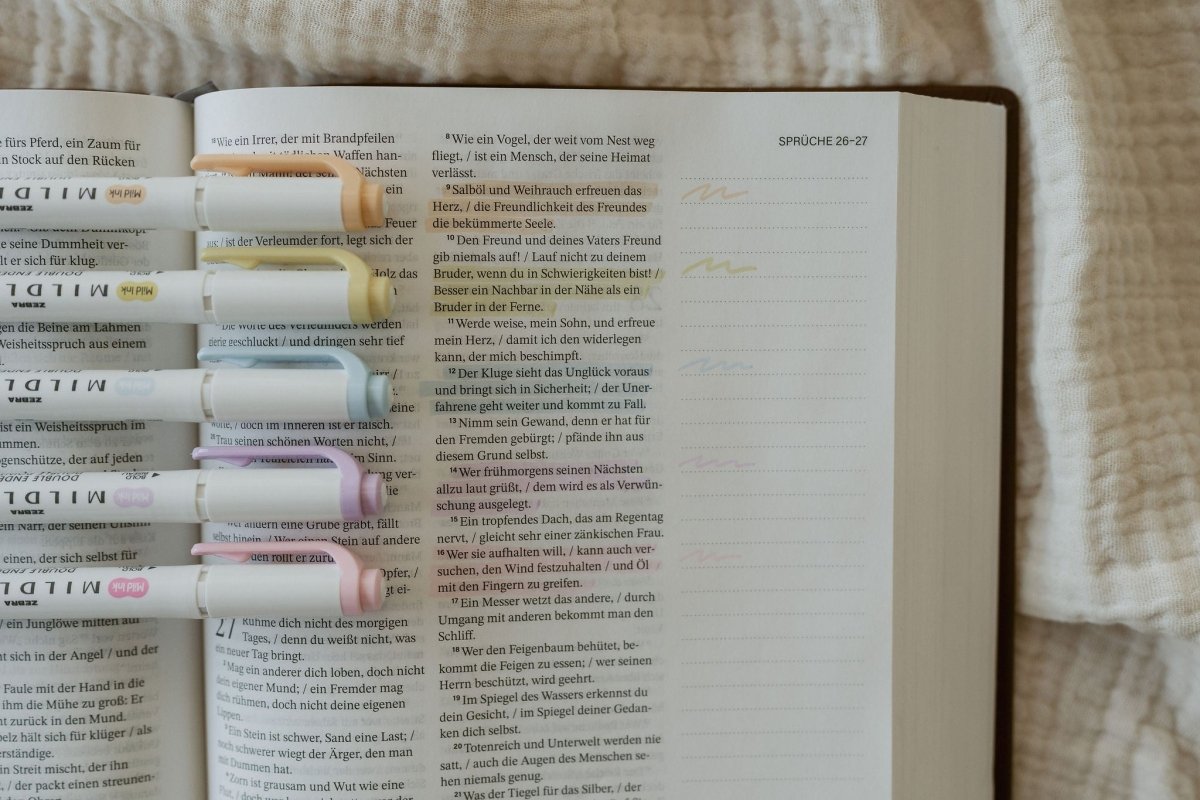 SPRÜCHE 26–27
fürs Pferd, ein Zaum für
Stock auf den Rücken
seine Dummheit ver-
er sich für klug.
die Beine am Lahmen
Weisheitsspruch aus einem
ist ein Weisheitsspruch im
der auf jeden
ein Narr, der seinen
einen, der sich selbst für
/ ein Junglöwe mitten auf
sich in der Angel / und der
Faule mit der Hand in die
ihm die Mühe zu groß: Er
zurück in den Mund.
hält sich für klüger / als
Streit mischt, der ihn
/ der packt einen streunen-
MILDL
Mild Ink
ZEBRA
MILDL
Mild Ink
ZEBRA
MILDL
Mild Ink
ZEBRA
DOUBLE ENDE
MILDL
Mild Ink
ZEBRA
MILDL
Mild Ink
ZEBRA
Wie ein Irrer, der mit Brandpfeilen
Waffen han-
Nächsten
ein
Feuer
aus: / ist der Verleumder fort, legt sich der
Holz das
Die Worte des Verleumders werden
gierig geschluckt / und dringen sehr tief
/ doch im Inneren ist er falsch.
25 Trau seinen schönen Worten nicht, /
im Sinn.
ver-
die
Wer andern eine Grube gräbt, fällt
selbst hinein, / Wer einen Stein auf andere
den rollt er
Opfer, /
ei-
27 Rühme dich nicht des morgigen
Tages, / denn du weißt nicht, was
ein neuer Tag bringt.
2 Mag ein anderer dich loben, doch nicht
dein eigener Mund; / ein Fremder mag
dich rühmen, doch nicht deine eigenen
Lippen.
3 Ein Stein ist schwer, Sand eine Last; /
noch schwerer wiegt der Ärger, den man
mit Dummen hat.
4 Zorn ist grausam und Wut wie eine
Flut, / doch
8 Wie ein Vogel, der weit vom Nest weg
fliegt, / ist ein Mensch, der seine Heimat
verlässt.
9 Salböl und Weihrauch erfreuen das
Herz, / die Freundlichkeit des Freundes
die bekümmerte Seele.
10 Den Freund und deines Vaters Freund
gib niemals auf! / Lauf nicht zu deinem
Bruder, wenn du in Schwierigkeiten bist! /
Besser ein Nachbar in der Nähe als ein
Bruder in der Ferne.
11 Werde weise, mein Sohn, und erfreue
mein Herz, / damit ich den widerlegen
kann, der mich beschimpft.
12 Der Kluge sieht das Unglück voraus
und bringt sich in Sicherheit; / der Uner-
fahrene geht weiter und kommt zu Fall.
13 Nimm sein Gewand, denn er hat für
den Fremden gebürgt; / pfände ihn aus
diesem Grund selbst.
14 Wer frühmorgens seinen Nächsten
allzu laut grüßt, / dem wird es als Verwün-
schung ausgelegt.
15 Ein tropfendes Dach, das am Regentag
nervt, / gleicht sehr einer zänkischen Frau.
16 Wer sie aufhalten will, / kann auch ver-
suchen, den Wind festzuhalten / und Öl
mit den Fingern zu greifen.
17 Ein Messer wetzt das andere, / durch
Umgang mit anderen bekommt man den
Schliff.
18 Wer den Feigenbaum behütet, be-
kommt die Feigen zu essen; / wer seinen
Herrn beschützt, wird geehrt.
19 Im Spiegel des Wassers erkennst du
dein Gesicht, / im Spiegel deiner Gedan-
ken dich selbst.
20 Totenreich und Unterwelt werden nie
satt, / auch die Augen des Menschen se-
hen niemals genug.
21 Was der Tiegel für das Silber, / der